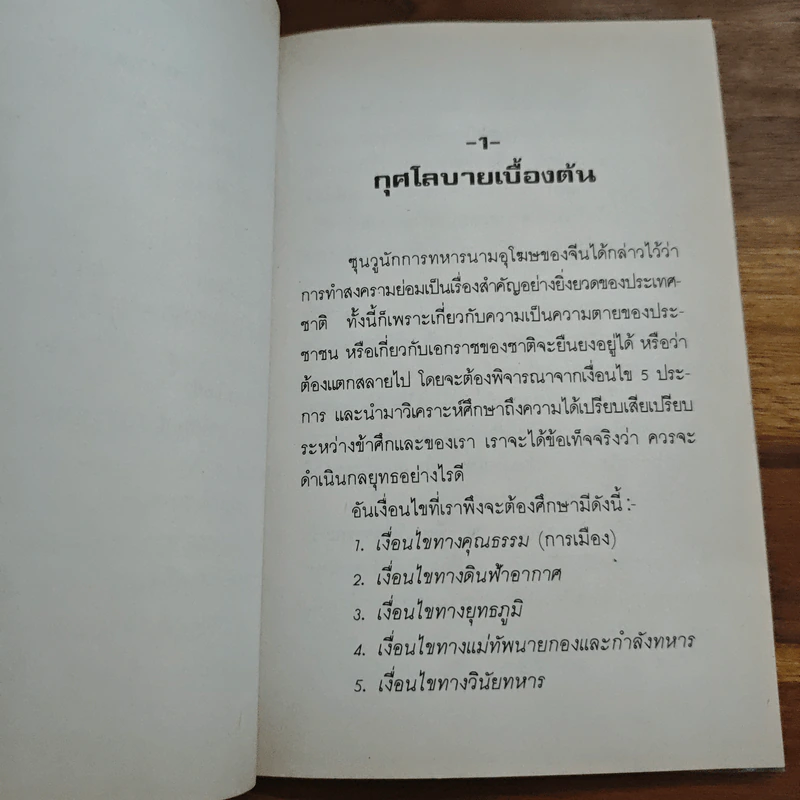 -1-
กุศโลบายเบื้องต้น
ซุนวูนักการทหารนามอุโฆษของจีนได้กล่าวไว้ว่า
การทำสงครามย่อมเป็นเรื่องสำคัญอย่างยิ่งยวดของประเทศ-
ชาติ ทั้งนี้ก็เพราะเกี่ยวกับความเป็นความตายของประ-
ชาชน หรือเกี่ยวกับเอกราชของชาติจะยืนยงอยู่ได้ หรือว่า
ต้องแตกสลายไป โดยจะต้องพิจารณาจากเงื่อนไข 5 ประ-
การ และนำมาวิเคราะห์ศึกษาถึงความได้เปรียบเสียเปรียบ
ระหว่างข้าศึกและของเรา เราจะได้ข้อเท็จจริงว่า ควรจะ
ดำเนินกลยุทธอย่างไรดี
อันเงื่อนไขที่เราพึงจะต้องศึกษามีดังนี้ :-
1. เงื่อนไขทางคุณธรรม (การเมือง)
2. เงื่อนไขทางดินฟ้าอากาศ
3. เงื่อนไขทางยุทธภูมิ
4. เงื่อนไขทางแม่ทัพนายกองและกำลังทหาร
5. เงื่อนไขทางวินัยทหาร